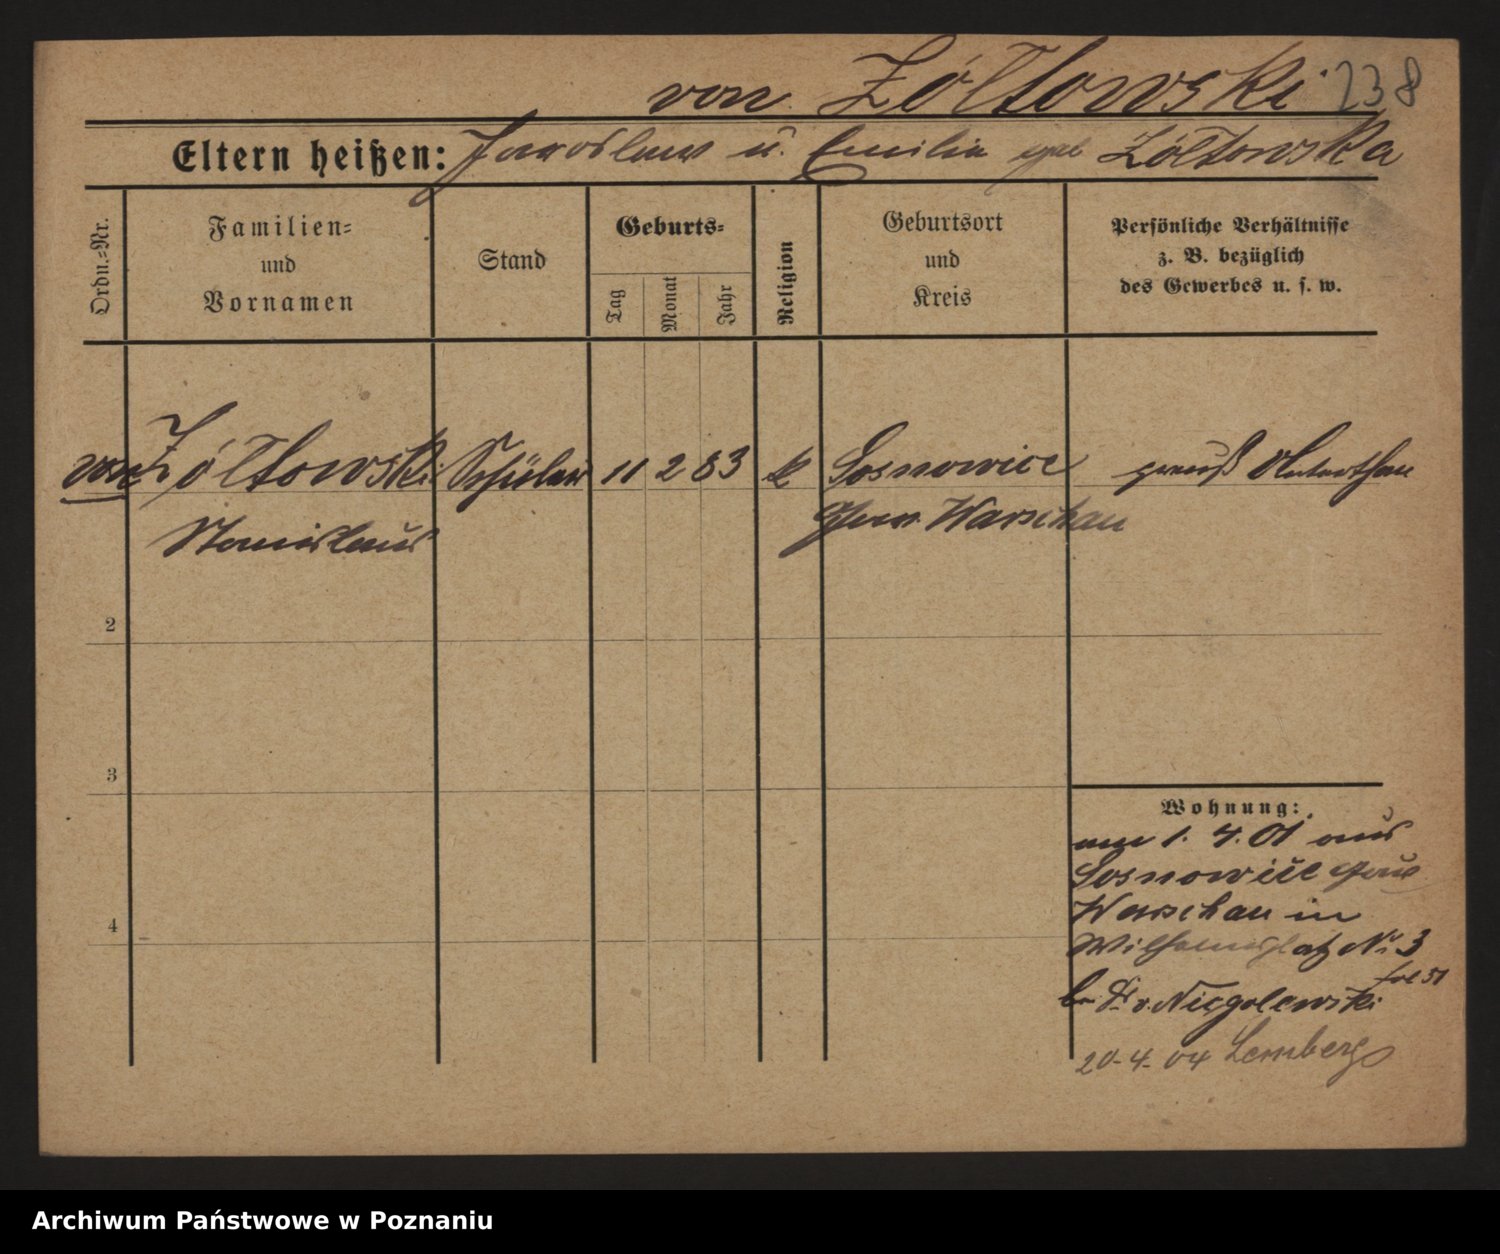 von Żółtowski 238
Eltern heißen: Jaroslaw u. Emilie geb Żółtowska
Ordn.-Nr.
Familien-
und
Vornamen
Stand
Geburts-
Tag
Monat
Jahr
Religion
Geburtsort
und
Kreis
Persönliche Verhältnisse
z. B. bezüglich
des Gewerbes u. s. w.
von Żółtowski Schüler 11 2 83 k Sosnowice preuß Unterthan
Stanislaus Gouv. Warschau
2
3
4
Wohnung:
am 1. 4. 01 aus
Sosnowice Gouv
Warschau in
Wilhelmsplatz No 3
bei Dr v. Niegolewski
20-4-04 Lemberg
Archiwum Państwowe w Poznaniu